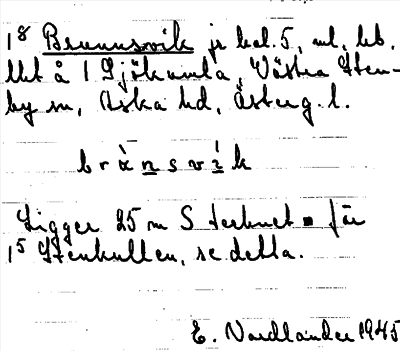 1⁸ Brunnsvik jr bal. 5, ml, bb.
litt å 1 Sjökumla, Västra Sten-
by sn, Aska hd, Österg. l.
brànsvík
Ligger 25 m S tecknet för
1⁵ Stenkullen, se detta.
E. Nordlander 1945